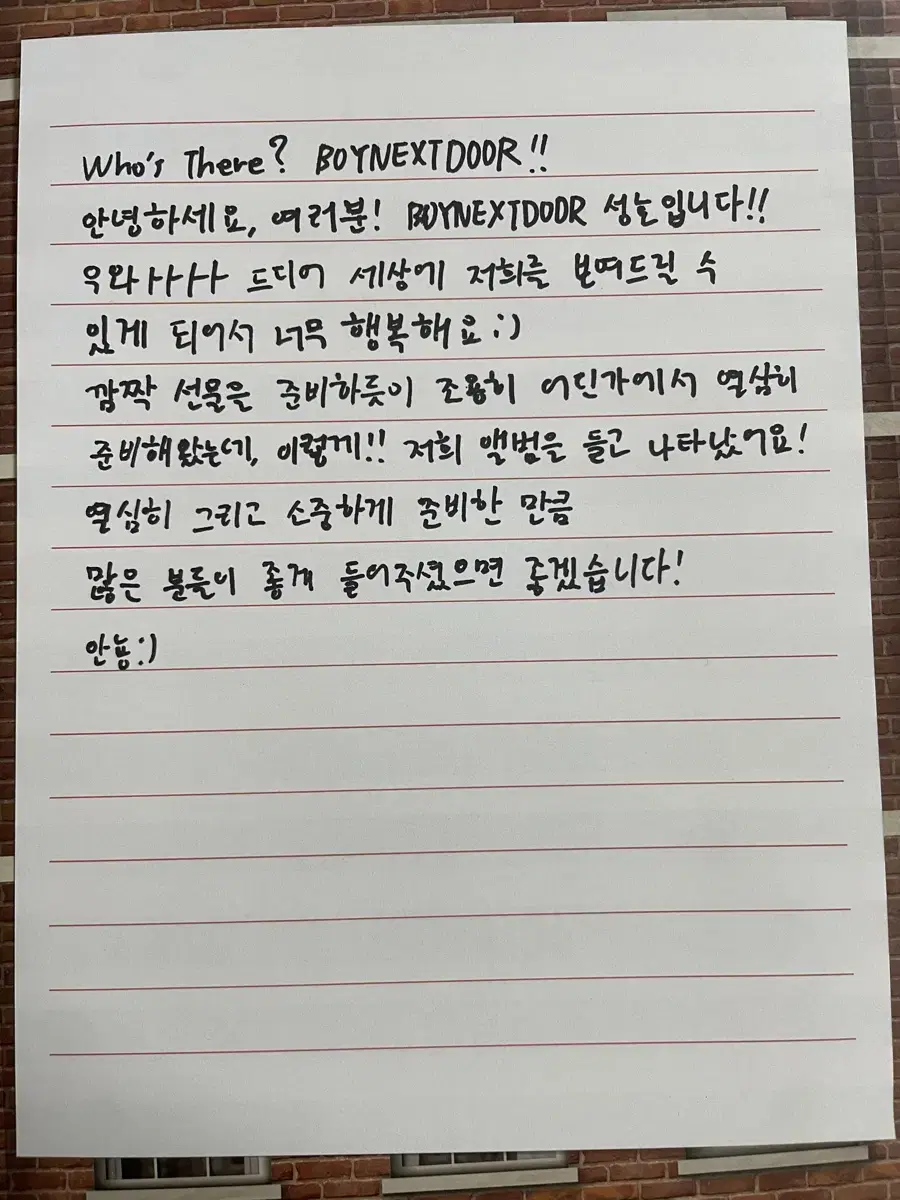 Who's There? BOYNEXTDOOR!!
안녕하세요, 여러분! BOYNEXTDOOR 성호입니다!!
우와ㅏㅏㅏ 드디어 세상에 저희를 보여드릴 수
있게 되어서 너무 행복해요:)
깜짝 선물을 준비하듯이 조용히 어딘가에서 열심히
준비해왔는데, 이렇게!! 저희 앨범을 들고 나타났어요!
열심히 그리고 소중하게 준비한 만큼
많은 분들이 좋게 들어주셨으면 좋겠습니다!
안뇽:)